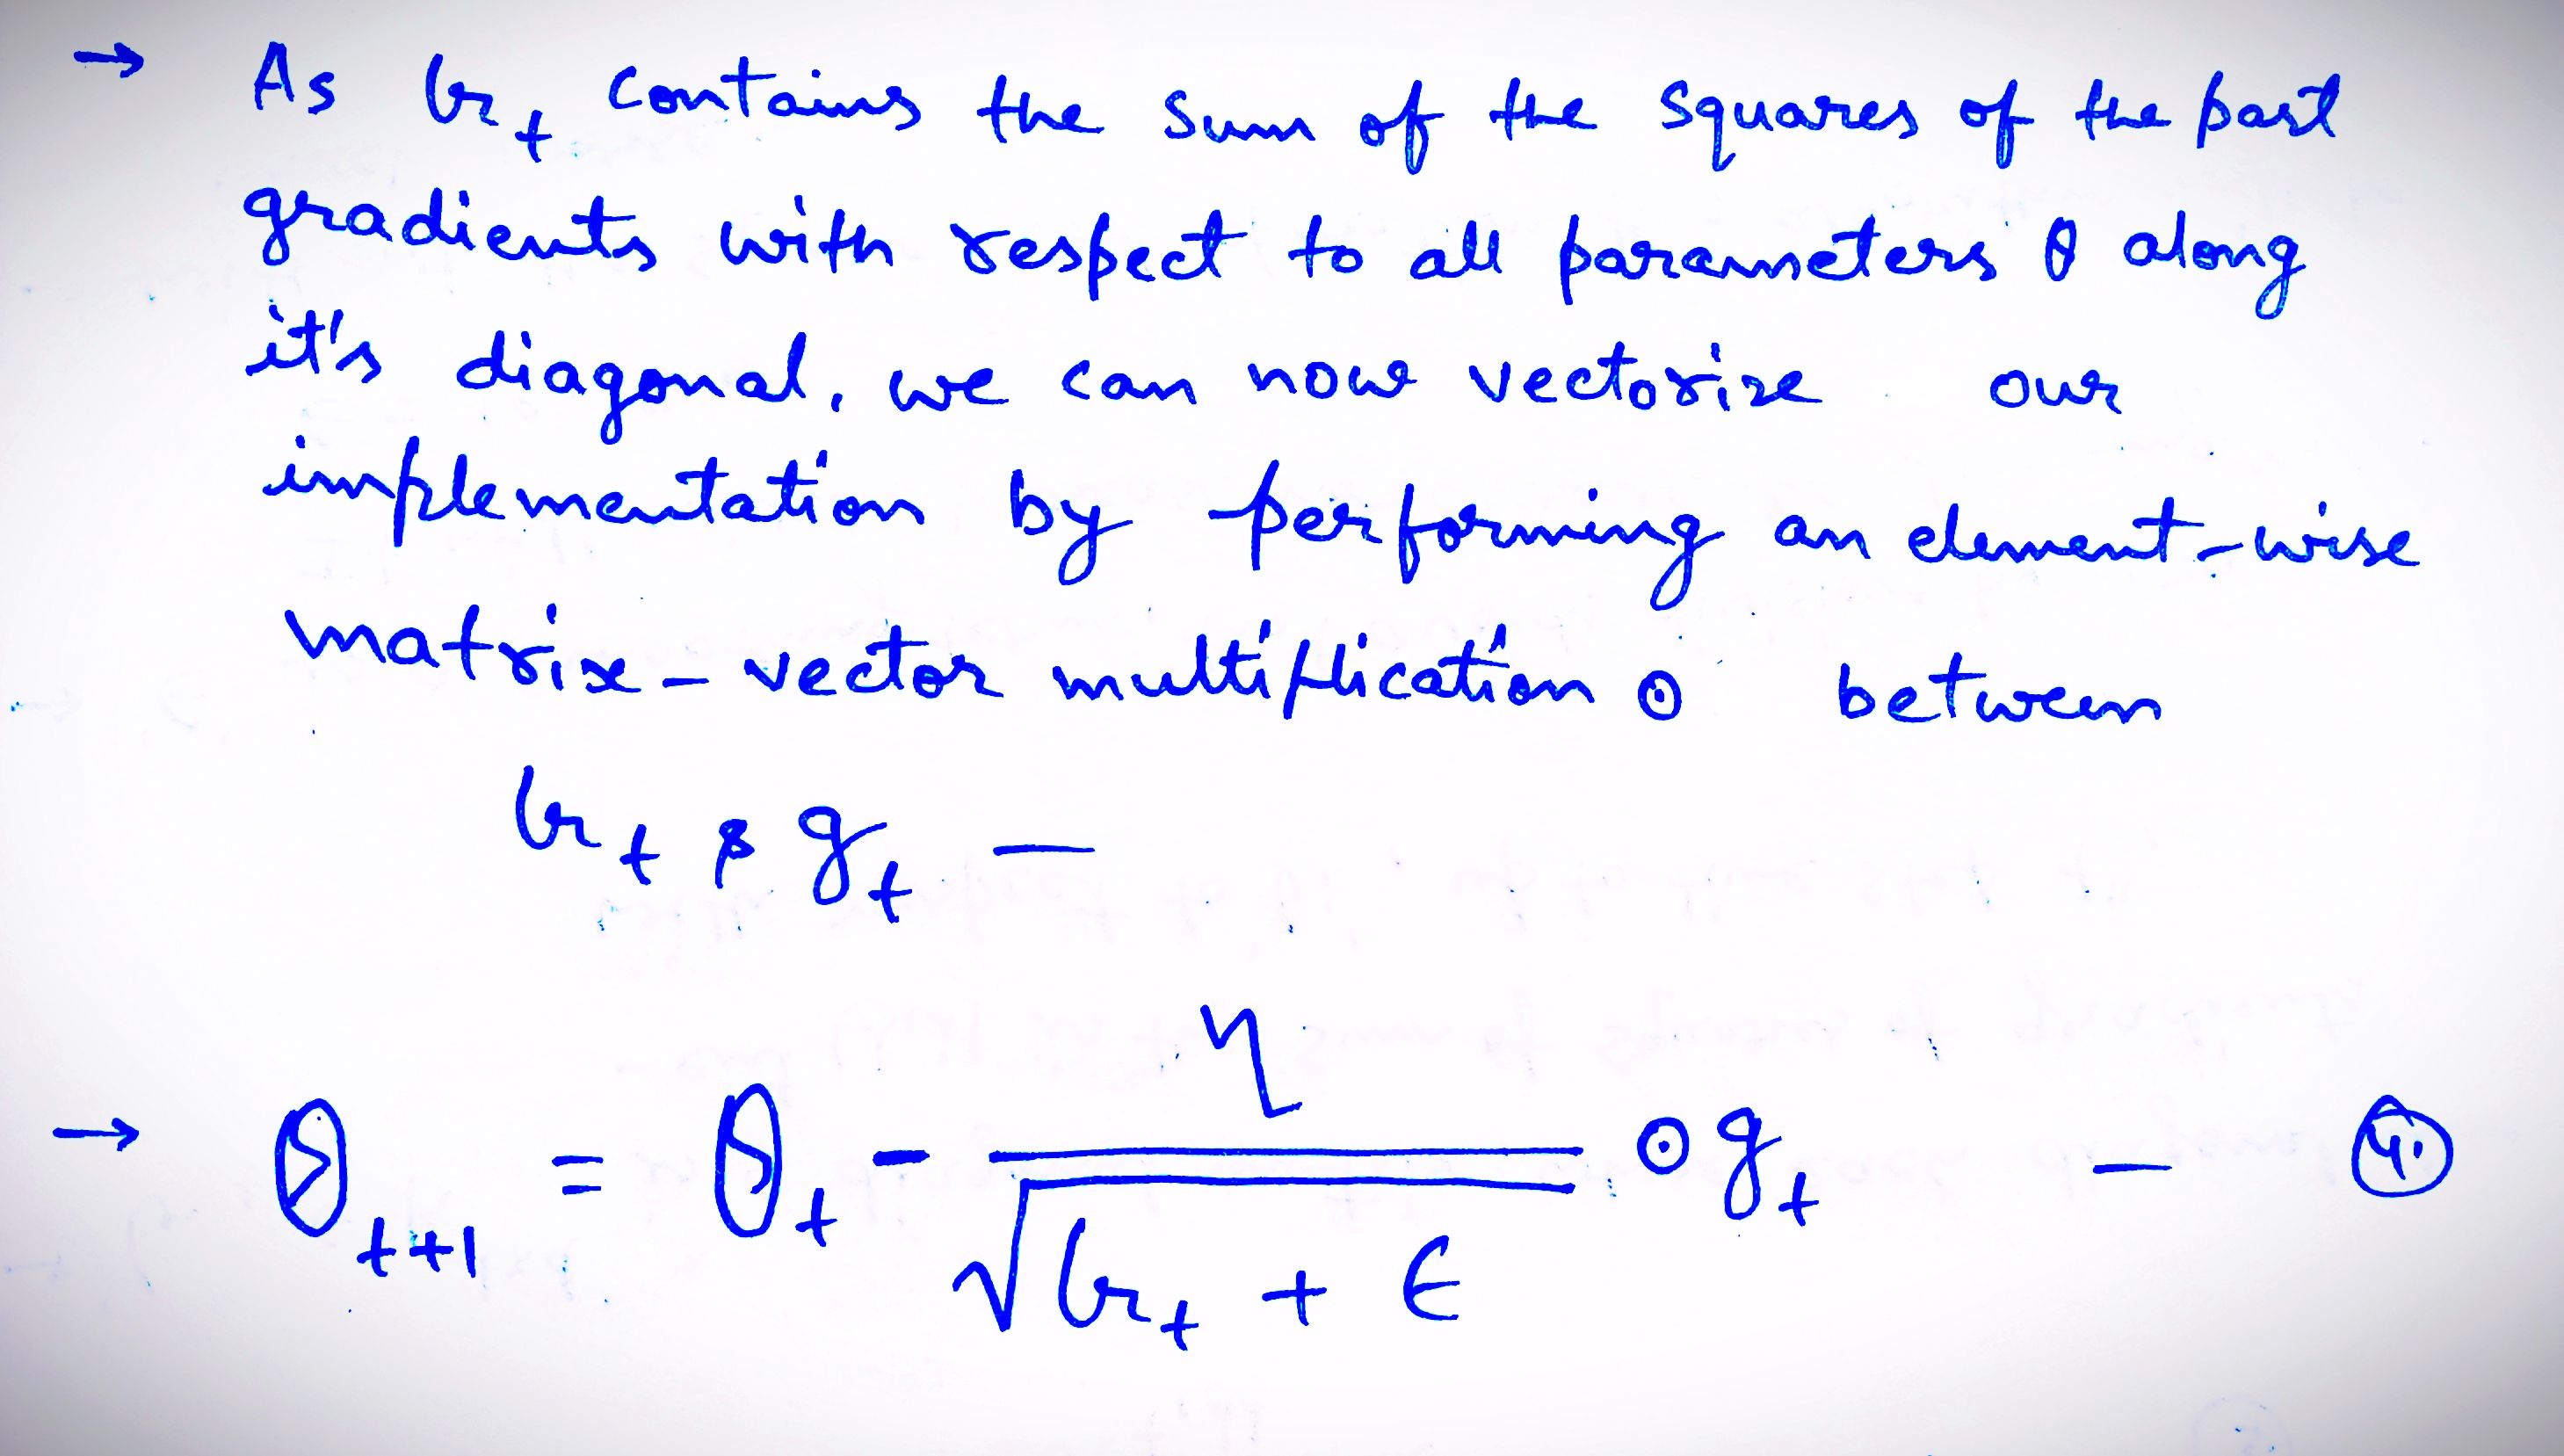 → As G_t contains the sum of the squares of the past
gradients with respect to all parameters θ along
it's diagonal, we can now vectorize our
implementation by performing an element-wise
matrix-vector multiplication ⊙ between
G_t & g_t —
→ θ_{t+1} = θ_t - η / √(G_t + ϵ) ⊙ g_t — ④